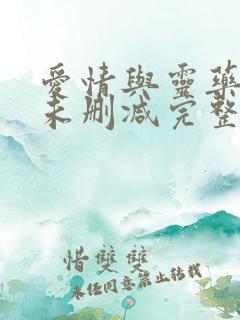 愛情與靈藥
未刪減完整
惜雙雙
未经同意禁止转载